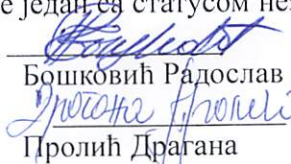 је један са статусом не
Бошковић Радослав
Драгана Пролић
Пролић Драгана